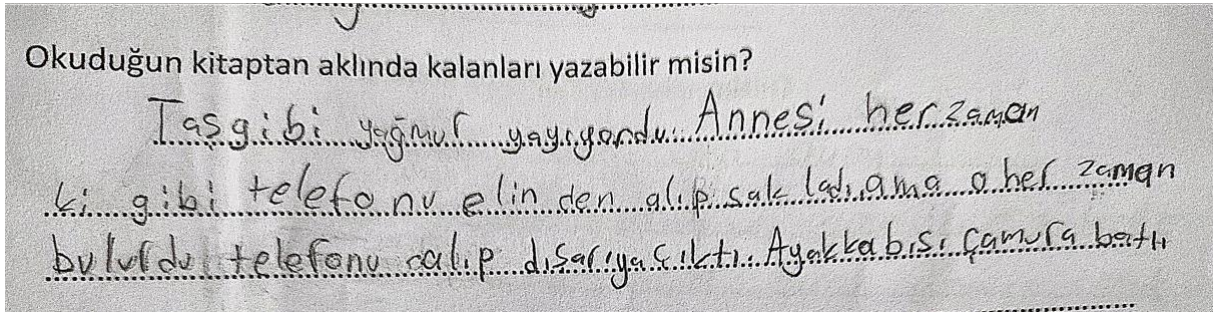 Okuduğun kitaptan aklında kalanları yazabilir misin?
Taşgibi yağmur yayıyordu. Annesi her zaman
ki gibi telefonu elin den alıp sak ladı ama o her zaman
bulurdu telefonu alıp dışarıya çıktı. Ayakkabısı çamura battı